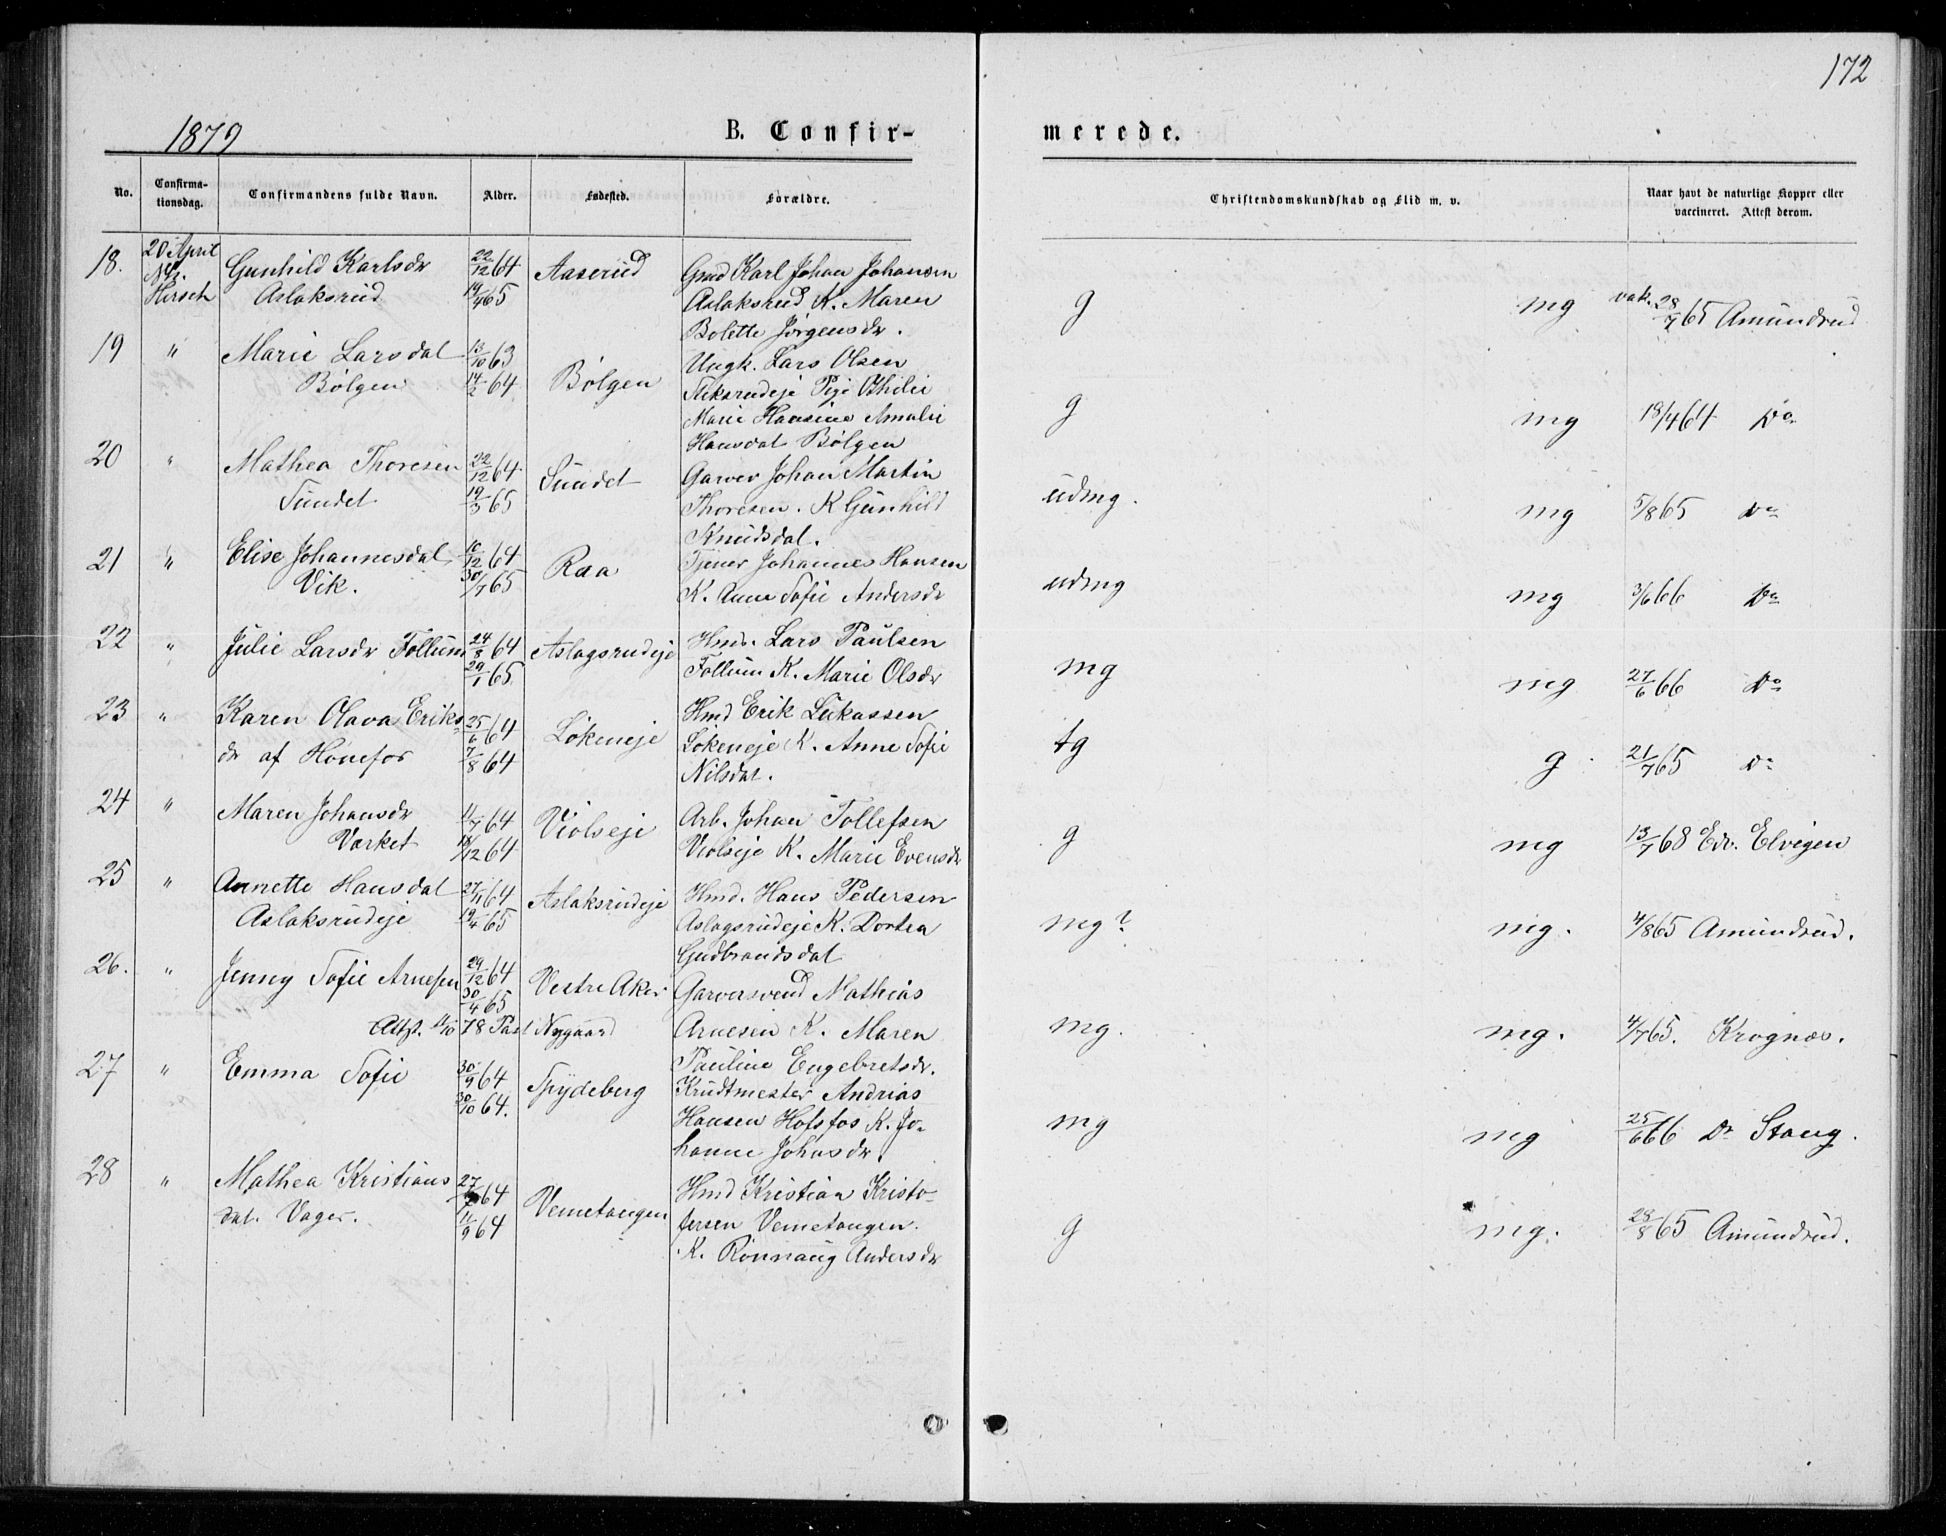 172
1879 B. Confir- merede.
No. Confirma-tionsdag. Confirmandens fulde Navn. Alder. Fødested. Forældre. Christendomskundskab og Flid m. v. Naar havt de naturlige Kopper eller vaccineret. Attest derom.
18. 20 April Gunhild Karlsdr 22/12 64 Aaserud Gmd Karl Johan Johansen
Hirsch Aslaksrud 19/4 65 Aslaksrud K. Maren g mg vak. 28/7 65 Amundrud
Bolette Jörgensdr.
19 " Marie Larsdat 13/10 63 Ungk. Lars Olsen
Bölgen 14/2 64 Bölgen Pige Othilie
Marie Hansine Amalie g mg 18/4 64 Do
Hansdat Bölgen
20 " Mathea Thoresen 22/12 64 Sundet Garver Johan Martin
Sundet 19/3 65 Thoresen. K Gunhild udmg. mg 5/8 65 Do
Knudsdat.
21 " Elise Johannesdat 10/12 64 Raa Tjener Johannes Hansen
Vik. 30/7 65 K. Anne Sofie Andersdr udmg mg 3/6 66 Do
22 " Julie Larsdr Follum 24/8 64 Aslagsrudeje Hmd. Lars Paulsen
29/1 65 Follum K. Marie Olsdr mg mg 27/6 66 Do
23 " Karen Olava Eriks- 25/6 64 Lökeneje Hmd Erik Lukassen
dr af Honefos 7/8 64 Lökeneje K. Anne Sofie tg g 21/7 65 Do
Nilsdat.
24 " Maren Johansdr 11/7 64 Violseje Arb. Johan Tollefsen
Værket 18/12 64 Violseje K. Marie Evensdr g mg 13/7 68 Edv. Elvigen
25 " Annette Hansdat 27/11 64 Aslaksrudeje Hmd. Hans Pedersen
Aslaksrudeje 19/4 65 Aslagsrudeje K. Dortea mg? mg. 4/8 65 Amundrud.
Gudbrandsdat
26. " Jenny Sofie Arnesen 29/12 64 Vestre Aker Garversvend Mathias
30/4 65
Attst. 11/10 78 Past Nygaard Arnesen K. Maren mg. mg. 4/7 65. Krognæs.
Pauline Engebretsdr.
27 " Emma Sofie 30/9 64 Spydeberg Krudtmester Andrias
30/10 64. Hansen Hofsfos K. Jo- mg mg 25/6 66 Dr Stang.
hanne Johnsdr.
28 " Mathea Kristians 27/7 64 Vemetangen Hmd Kristian Kristo-
dat. Vager. 11/9 64 fersen Vemetangen. g mg. 28/8 65 Amundrud.
K. Rönnaug Andersdr